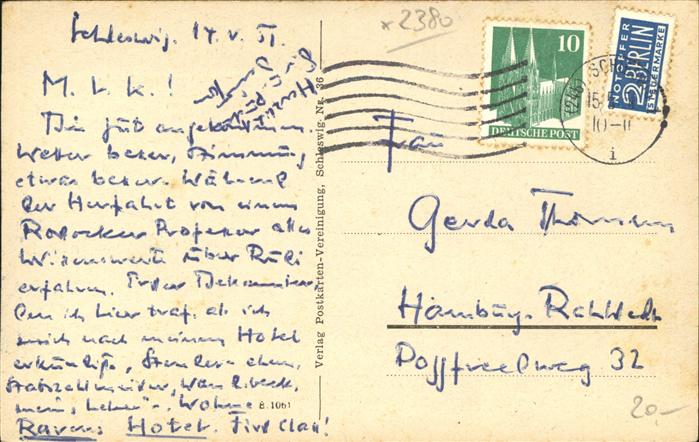 x2380
Schleswig. 14.V.51
M. L. K.!
Bin gut angekommen.
Wetter besser, Stimmung
etwas besser. Während
der Herfahrt von einem
Rostocker Professor alles
Wissenswerte über
erfahren. Erster Bekannter
den ich hier traf, als ich
mich nach meinem Hotel
erkundigte,
Stabszahlmeister, Wandsbeck,
mein "Lehrer". Wohne
Ravens Hotel. First Class!
Herzl.
Verlag Postkarten-Vereinigung, Schleswig, Nr. 36
B.1061
10
DEUTSCHE POST
NOTOPFER
2 BERLIN
STEUERMARKE
SCH
(24b)
15.5
10-11
i
Frau
Gerda Thomsen
Hamburg-Rahlstedt
32
20,-